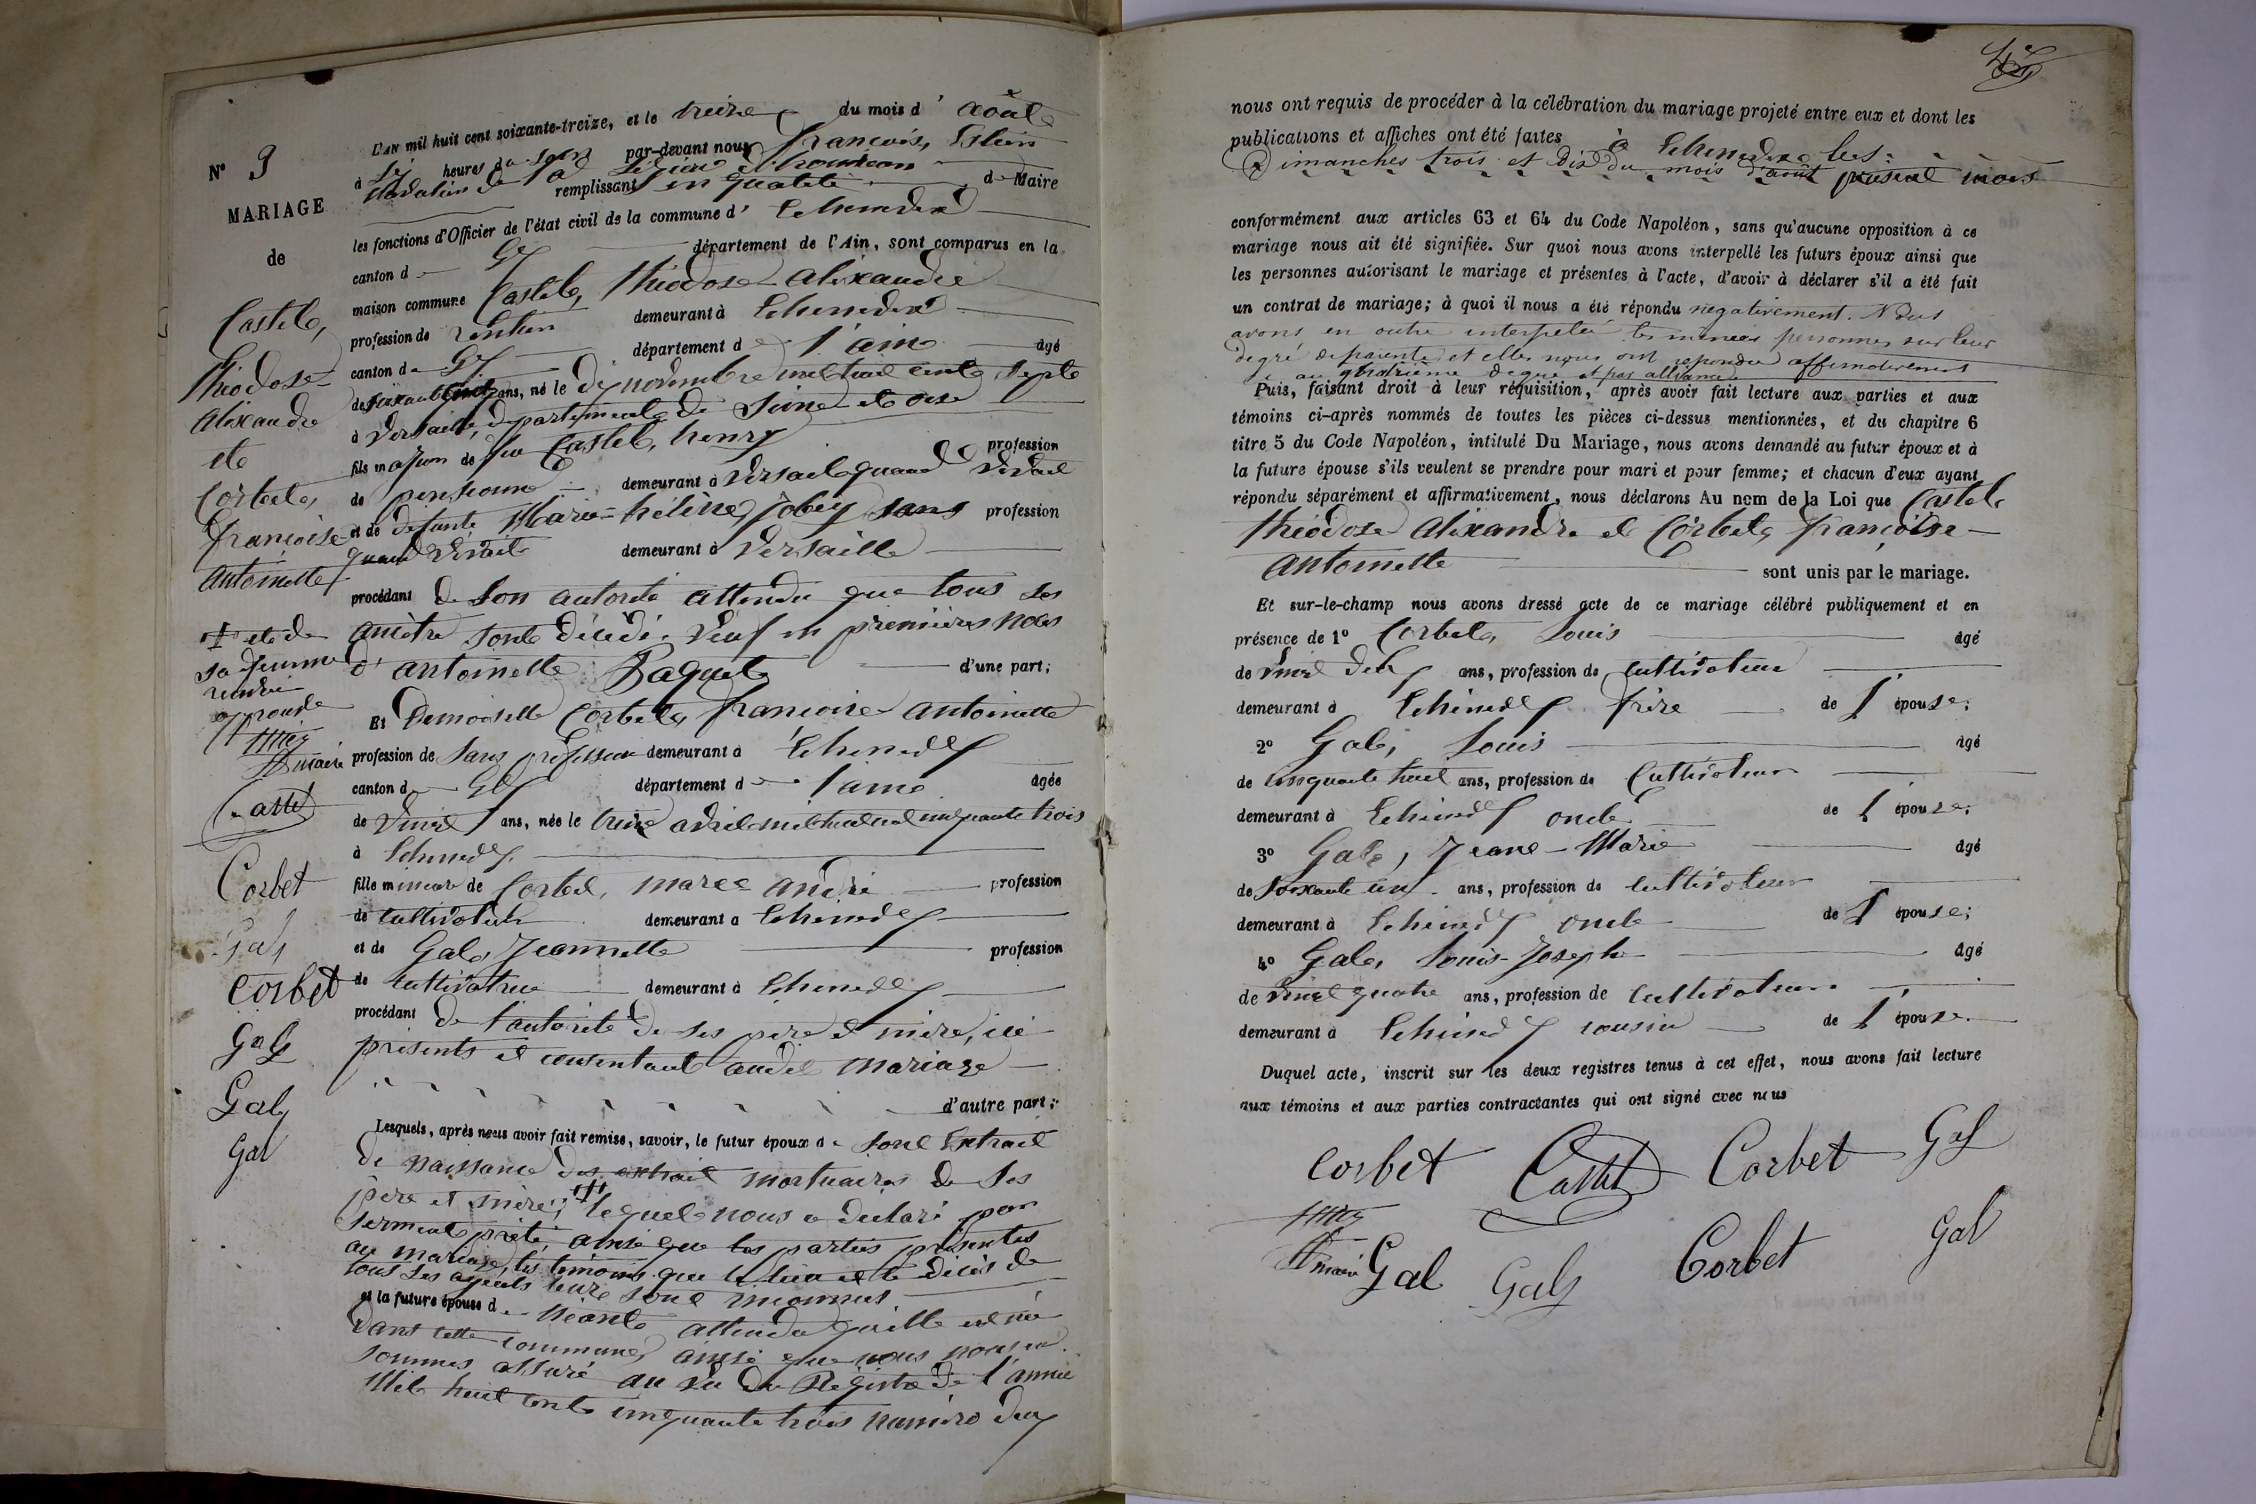 N° 3
MARIAGE
de
Castel,
Théodose
Alixandre
et
Corbet,
françoise
antoinette
et de
sa femme
approuvé
maire
Castel
Corbet
Gal
Corbet
Gal
Gal
Gal
L'AN mil huit cent soixante-treize, et le treize du mois d'août
à heures du soir par-devant nous françois,
de la Légion d'honneur
remplissant en qualité de Maire
les fonctions d'Officier de l'état civil de la commune d'Echenevex
canton de Gex département de l'Ain, sont comparus en la
maison commune Castel, Théodose Alixandre
profession de rentier demeurant à Echenevex
canton de Gex département de l'ain âgé
de soixante ans, né le dix novembre mil huit cent sept
à Versaille, département de Seine et oise
fils majeur de feu Castel, henry profession
de pensionné demeurant à Versaile quand vivait
et de défunte Marie-hélène, Jobey sans profession
quand vivait demeurant à Versaille
procédant de son autorité attendu que tous ses
ancêtre sont décédé. Veuf en premières noces
d'antoinette Paquet d'une part;
Et Demoiselle Corbet, françoise antoinette
profession de sans profession demeurant à Echenevex
canton de Gex département de l'ain âgée
de vingt ans, née le treize avril mil huit cent cinquante trois
à Echenevex
fille mineure de Corbet, marc andré profession
de cultivateur demeurant à Echenevex
et de Gal, Jeannette profession
de cultivatrice demeurant à Echenevex
procédant de l'autorité de ses père et mère, ici
présents et consentant audit mariage
d'autre part;
Lesquels, après nous avoir fait remise, savoir, le futur époux de son Extrait
de naissance des extrait mortuaires de ses
père et mère; lequel nous a déclaré par
serment prêté, ainsi que les parties présentes
au mariage, les témoins que le lieu et le décès de
tous ses ayeuls leurs sont inconnus
et la future épouse de néante attendu qu'elle est née
dans cette commune, ainsi que nous nous en
sommes assuré au vu du Registre de l'année
Mil huit cent cinquante trois numéro deux
nous ont requis de procéder à la célébration du mariage projeté entre eux et dont les
publications et affiches ont été faites à Echenevex les
Dimanches trois et dix du mois d'août présent mois
conformément aux articles 63 et 64 du Code Napoléon, sans qu'aucune opposition à ce
mariage nous ait été signifiée. Sur quoi nous avons interpellé les futurs époux ainsi que
les personnes autorisant le mariage et présentes à l'acte, d'avoir à déclarer s'il a été fait
un contrat de mariage; à quoi il nous a été répondu négativement. Nous
avons en outre interpelée les mêmes personnes sur leur
degré de parenté et elles nous ont repondu affirmativement
au quatrième degré et par alliance
Puis, faisant droit à leur réquisition, après avoir fait lecture aux parties et aux
témoins ci-après nommés de toutes les pièces ci-dessus mentionnées, et du chapitre 6
titre 5 du Code Napoléon, intitulé Du Mariage, nous avons demandé au futur époux et à
la future épouse s'ils veulent se prendre pour mari et pour femme; et chacun d'eux ayant
répondu séparément et affirmativement, nous déclarons Au nom de la Loi que Castel
théodose alixandre et Corbet, françoise
antoinette sont unis par le mariage.
Et sur-le-champ nous avons dressé acte de ce mariage célébré publiquement et en
présence de 1° Corbet, Louis âgé
de vingt deux ans, profession de cultivateur
demeurant à Echenevex frère de l'épouse;
2° Gal, Louis âgé
de cinquante huit ans, profession de Cultivateur
demeurant à Echenevex oncle de l'épouse;
3° Gal, Jeane-Marie âgé
de soixante un ans, profession de cultivateur
demeurant à Echenevex oncle de l'épouse;
4° Gal, Louis-Joseph âgé
de vingt quatre ans, profession de cultivateur
demeurant à Echenevex cousin de l'épouse.
Duquel acte, inscrit sur les deux registres tenus à cet effet, nous avons fait lecture
aux témoins et aux parties contractantes qui ont signé avec nous
Corbet Castel Corbet Gal
maire Gal Gal Corbet Gal